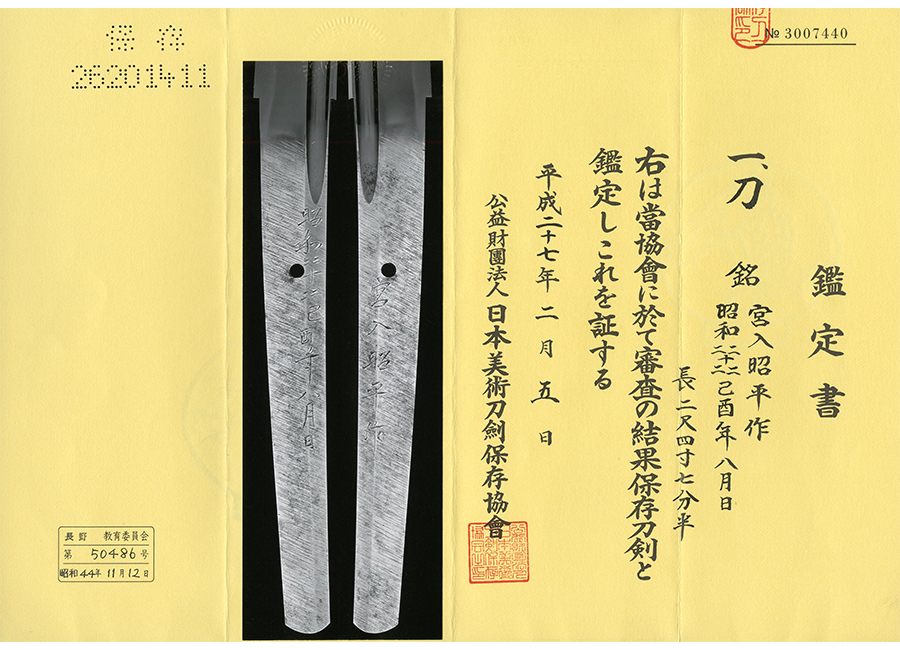 保存
26201411
№ 3007440
鑑定書
一、刀
銘 宮入昭平作
昭和二十二二十二己酉年八月日
長二尺四寸七分半
右は當協會に於て審査の結果保存刀剣と
鑑定しこれを証する
平成二十七年二月五日
公益財團法人日本美術刀劍保存協會
宮入昭平作
己酉年八月日
長野 教育委員会
第 50486 号
昭和44年11月12日